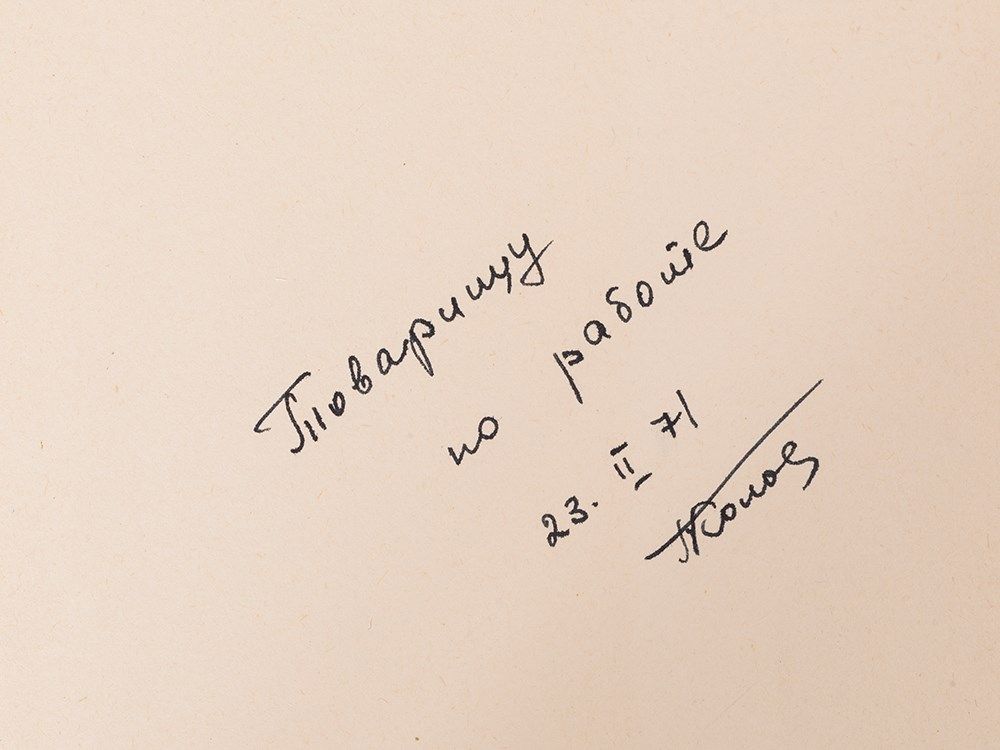 Товарищу
по работе
23. II 71